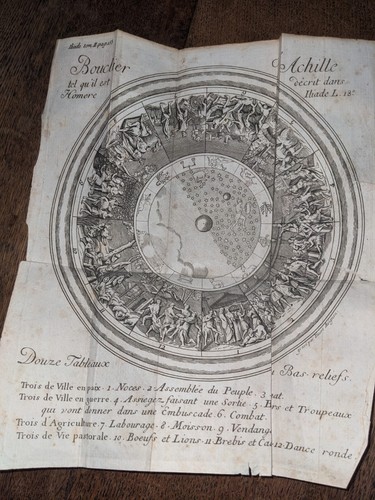 Iliade tom. II pag. 
Bouclier Achille
tel qu'il est décrit dans
Homere Iliade L. 18.
Douze Tableaux Bas-reliefs.
Trois de Ville en paix. 1. Noces. 2. Assemblée du Peuple. 3. at.
Trois de Ville en guerre. 4. Assiegez faisant une Sortie. 5. et Troupeaux
qui vont donner dans une Embuscade. 6. Combat.
Trois d'Agriculture. 7. Labourage. 8. Moisson. 9. Vendang
Trois de Vie pastorale. 10. Boeufs et Lions. 11. Brebis et 12. Dance ronde